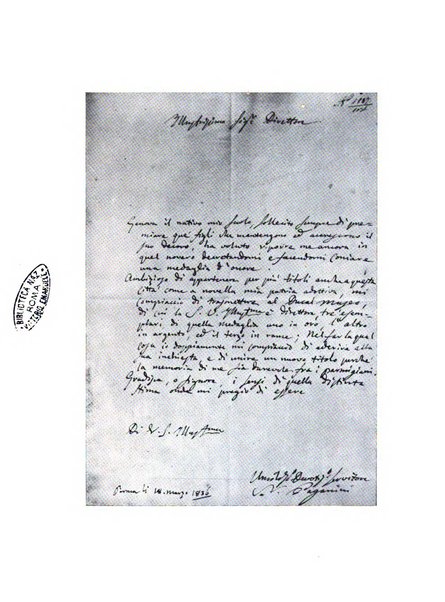 Illustrissimo Sigr Direttore
Genova il nativo mio suolo sollecito sempre di pre=
miare que' figli che
suo decoro ha voluto riporre me ancora in
quel novero decretandomi e facendomi coniare
una medaglia d'onore.
Ambizioso di appartenere per più titoli anche a questa
Città come a novella mia patria adottiva mi
compiaccio di trasmettere al Ducal museo
di cui la S. V. Illustrma è Direttore, tre esem=
plari di quella medaglia uno in oro, l'altro
in argento ed il terzo in rame; Nel far la qual
cosa io doppiamente mi compiaccio di aderire alla
sua inchiesta e di unire un nuovo titolo perchè
la memoria di me sia durevole fra i parmigiani.
Gradisca, o Signore, i sensi di quella distinta
stima colla mi pregio di essere
Di V. S. Illustrma
Parma li 18. marzo 1836
Umilmo Devotmo Servitore
N. Paganini
BIBLIOTECA NAZ.
ROMA
VITTORIO EMANUELE